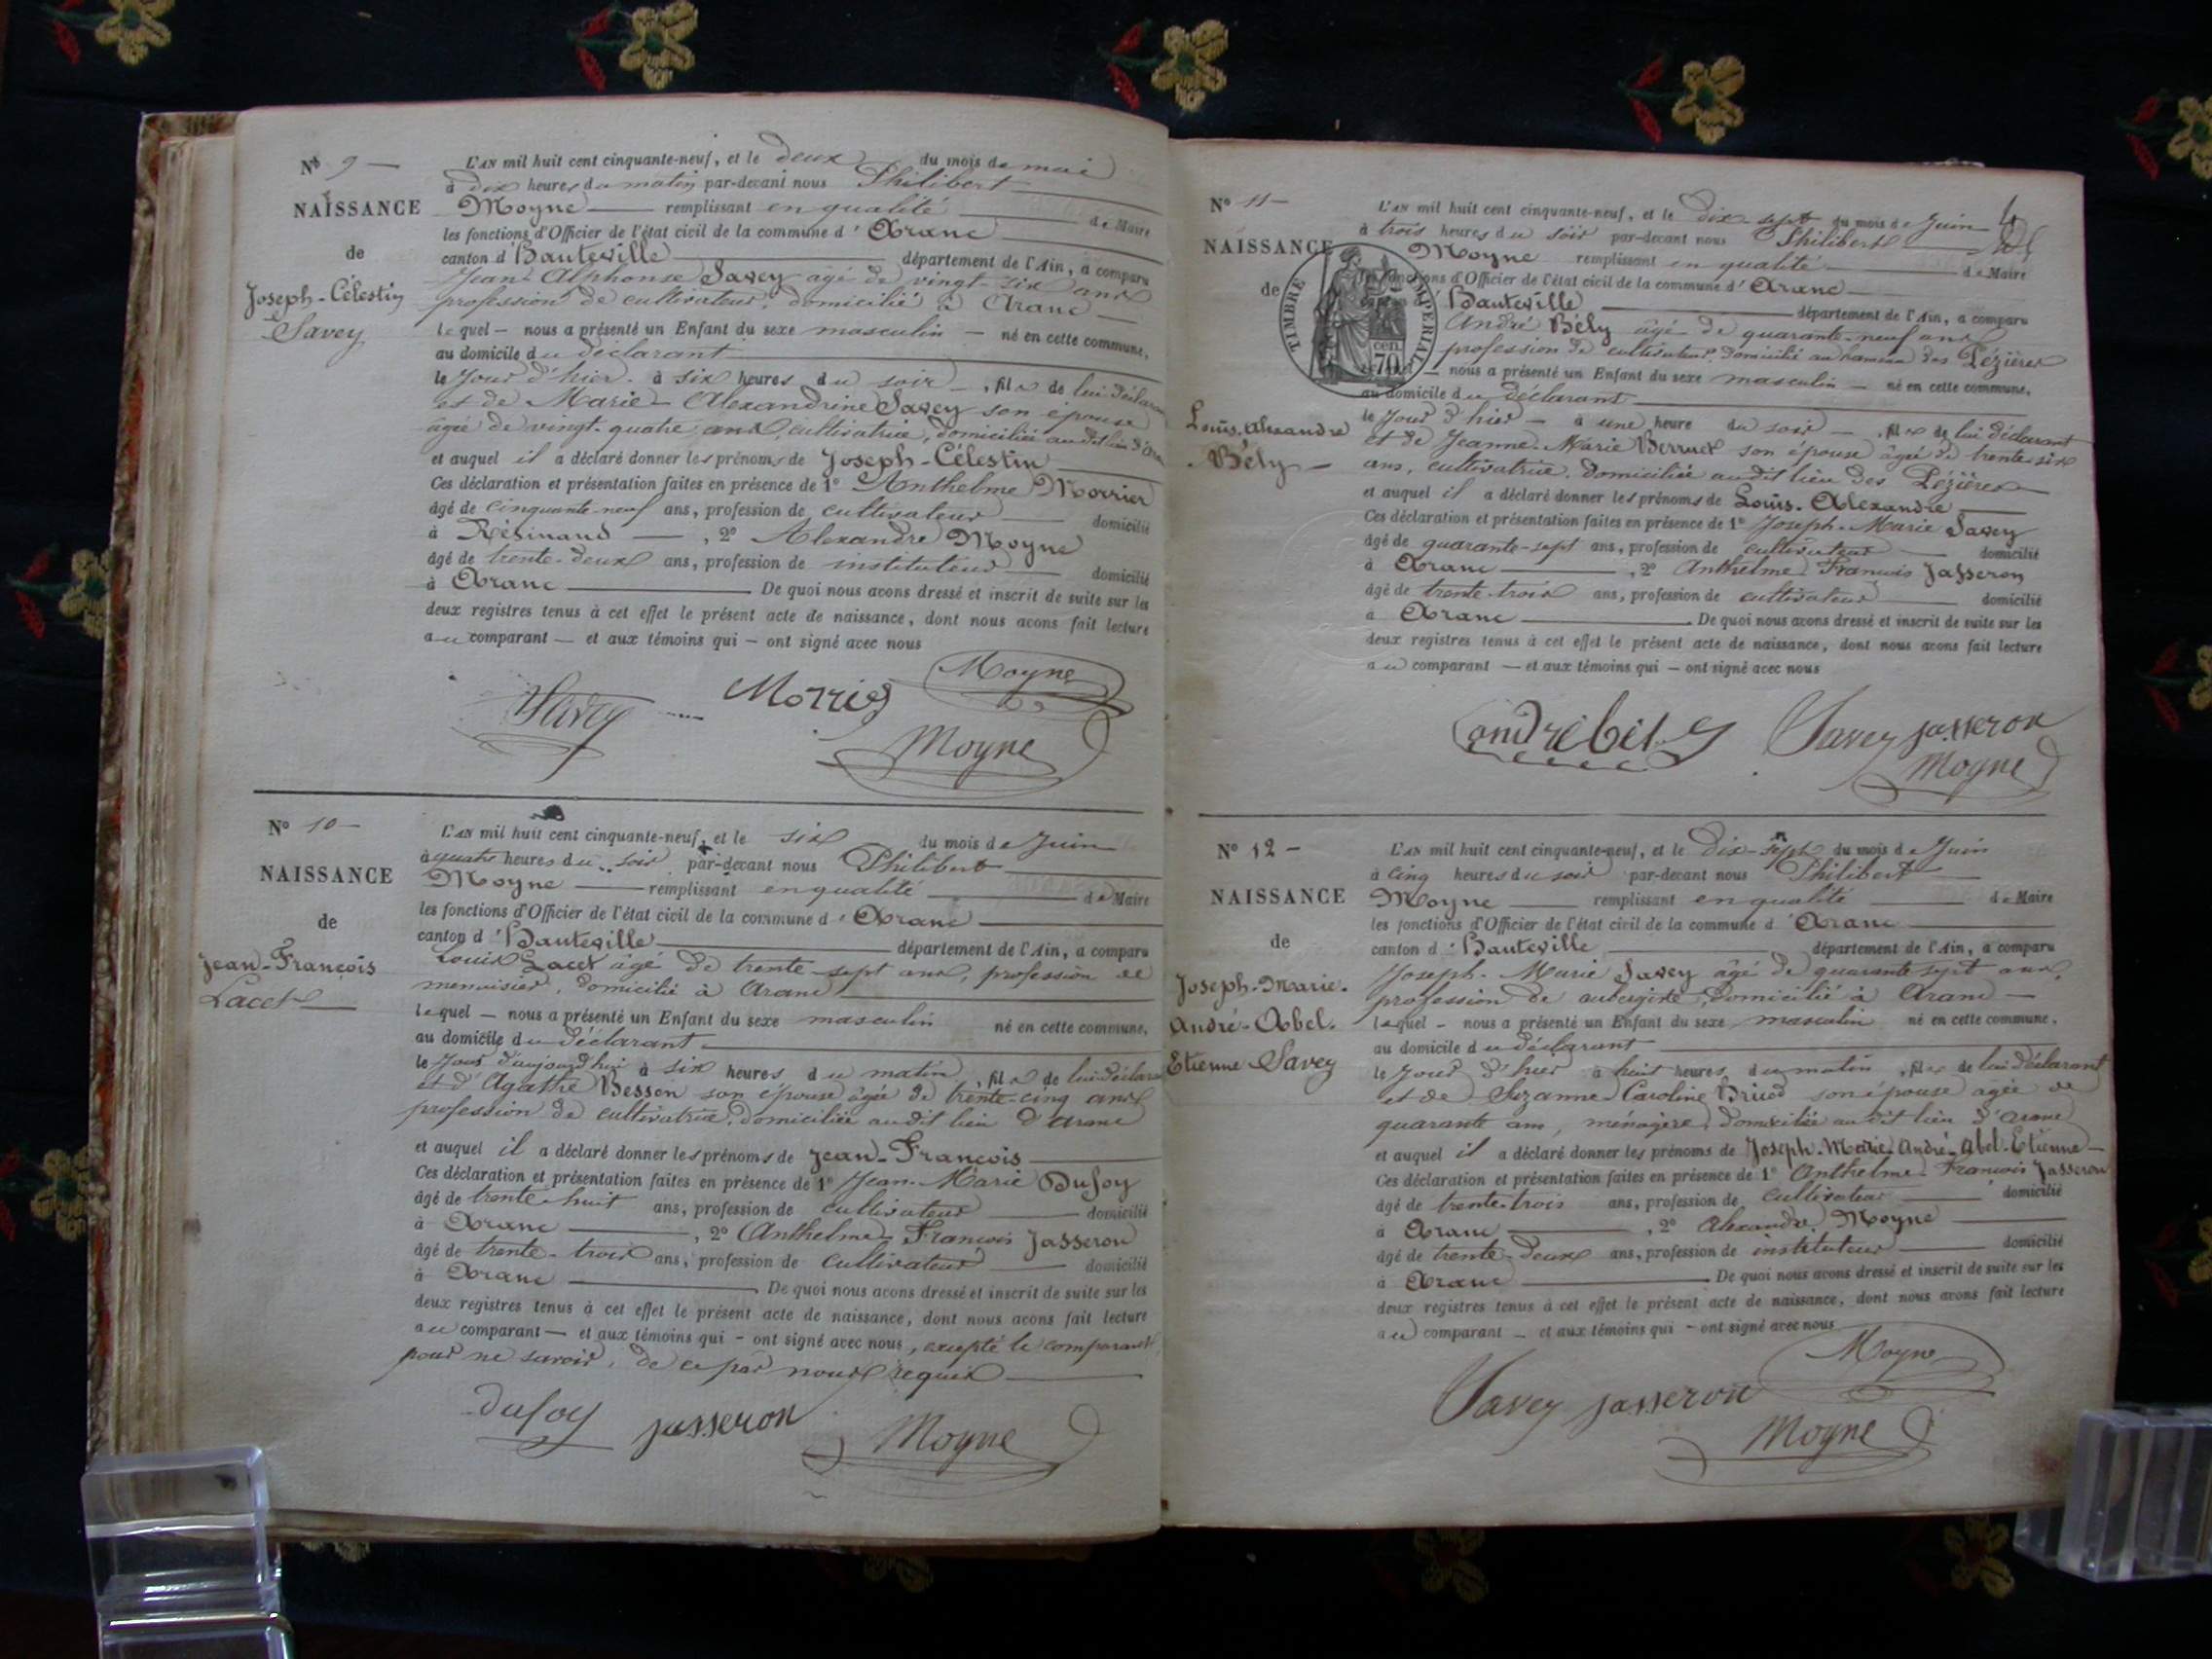 Nº 9 —
NAISSANCE
de
Joseph-Célestin
Savey
L'AN mil huit cent cinquante-neuf, et le deux du mois de mai
à dix heures du matin par-devant nous Philibert
Moyne remplissant en qualité de Maire
les fonctions d'Officier de l'état civil de la commune d'Aranc
canton d'Hauteville département de l'Ain, a comparu
Jean Alphonse Savey âgé de vingt-six ans
profession de cultivateur, domicilié à Aranc —
lequel — nous a présenté un Enfant du sexe masculin — né en cette commune,
au domicile du déclarant
le jour d'hier à six heures du soir —, fils de lui déclarant
et de Marie-Alexandrine Savey son épouse
âgée de vingt-quatre ans, cultivatrice, domiciliée audit lieu d'Aranc
et auquel il a déclaré donner les prénoms de Joseph-Célestin
Ces déclaration et présentation faites en présence de 1º Anthelme Morrier
âgé de cinquante-neuf ans, profession de cultivateur domicilié
à Résinand —, 2º Alexandre Moyne
âgé de trente-deux ans, profession de instituteur domicilié
à Aranc De quoi nous avons dressé et inscrit de suite sur les
deux registres tenus à cet effet le présent acte de naissance, dont nous avons fait lecture
au comparant — et aux témoins qui — ont signé avec nous
Savey Morrier Moyne
Moyne
Nº 10 —
NAISSANCE
de
Jean-François
Lacet
L'AN mil huit cent cinquante-neuf, et le six du mois de Juin
à quatre heures du soir par-devant nous Philibert
Moyne remplissant en qualité de Maire
les fonctions d'Officier de l'état civil de la commune d'Aranc
canton d'Hauteville département de l'Ain, a comparu
Louis Lacet âgé de trente-sept ans, profession de
menuisier, domicilié à Aranc
lequel — nous a présenté un Enfant du sexe masculin né en cette commune,
au domicile du déclarant
le jour d'aujourd'hui à six heures du matin, fils de lui déclarant
et d'Agathe Besson son épouse âgée de trente-cinq ans
profession de cultivatrice, domiciliée audit lieu d'Aranc
et auquel il a déclaré donner les prénoms de Jean-François
Ces déclaration et présentation faites en présence de 1º Jean-Marie Dufoy
âgé de trente-huit ans, profession de cultivateur domicilié
à Aranc, 2º Anthelme-François Jasseron
âgé de trente-trois ans, profession de cultivateur domicilié
à Aranc De quoi nous avons dressé et inscrit de suite sur les
deux registres tenus à cet effet le présent acte de naissance, dont nous avons fait lecture
au comparant — et aux témoins qui — ont signé avec nous, excepté le comparant,
pour ne savoir, de ce par nous requis
Dufoy Jasseron Moyne
Nº 11 —
NAISSANCE
de
Louis-Alexandre
Bély —
TIMBRE IMPERIAL
70 cen.
L'AN mil huit cent cinquante-neuf, et le dix-sept du mois de Juin
à trois heures du soir par-devant nous Philibert
Moyne remplissant en qualité de Maire
fonctions d'Officier de l'état civil de la commune d'Aranc
Hauteville département de l'Ain, a comparu
André Bély âgé de quarante-neuf ans
profession de cultivateur, domicilié au hameau des Pézières
— nous a présenté un Enfant du sexe masculin — né en cette commune,
au domicile du déclarant
le jour d'hier — à une heure du soir —, fils de lui déclarant
et de Jeanne-Marie Berruet son épouse âgée de trente-six
ans, cultivatrice, domiciliée audit lieu des Pézières
et auquel il a déclaré donner les prénoms de Louis-Alexandre
Ces déclaration et présentation faites en présence de 1º Joseph-Marie Savey
âgé de quarante-sept ans, profession de cultivateur domicilié
à Aranc, 2º Anthelme François Jasseron
âgé de trente-trois ans, profession de cultivateur domicilié
à Aranc De quoi nous avons dressé et inscrit de suite sur les
deux registres tenus à cet effet le présent acte de naissance, dont nous avons fait lecture
au comparant — et aux témoins qui — ont signé avec nous
andré bély Savey jasseron
Moyne
Nº 12 —
NAISSANCE
de
Joseph-Marie-
André-Abel-
Etienne Savey
L'AN mil huit cent cinquante-neuf, et le dix-sept du mois de Juin
à cinq heures du soir par-devant nous Philibert
Moyne remplissant en qualité de Maire
les fonctions d'Officier de l'état civil de la commune d'Aranc
canton d'Hauteville département de l'Ain, a comparu
Joseph-Marie Savey âgé de quarante sept ans,
profession de aubergiste, domicilié à Aranc —
lequel — nous a présenté un Enfant du sexe masculin né en cette commune,
au domicile du déclarant
le jour d'hier à huit heures du matin, fils de lui déclarant
et de Suzanne-Caroline son épouse âgée de
quarante ans, ménagère, domiciliée audit lieu d'Aranc
et auquel il a déclaré donner les prénoms de Joseph-Marie-André-Abel-Etienne —
Ces déclaration et présentation faites en présence de 1º Anthelme-François Jasseron
âgé de trente-trois ans, profession de cultivateur domicilié
à Aranc, 2º Alexandre Moyne
âgé de trente-deux ans, profession de instituteur domicilié
à Aranc De quoi nous avons dressé et inscrit de suite sur les
deux registres tenus à cet effet le présent acte de naissance, dont nous avons fait lecture
au comparant — et aux témoins qui — ont signé avec nous
Moyne
Savey jasseron
Moyne